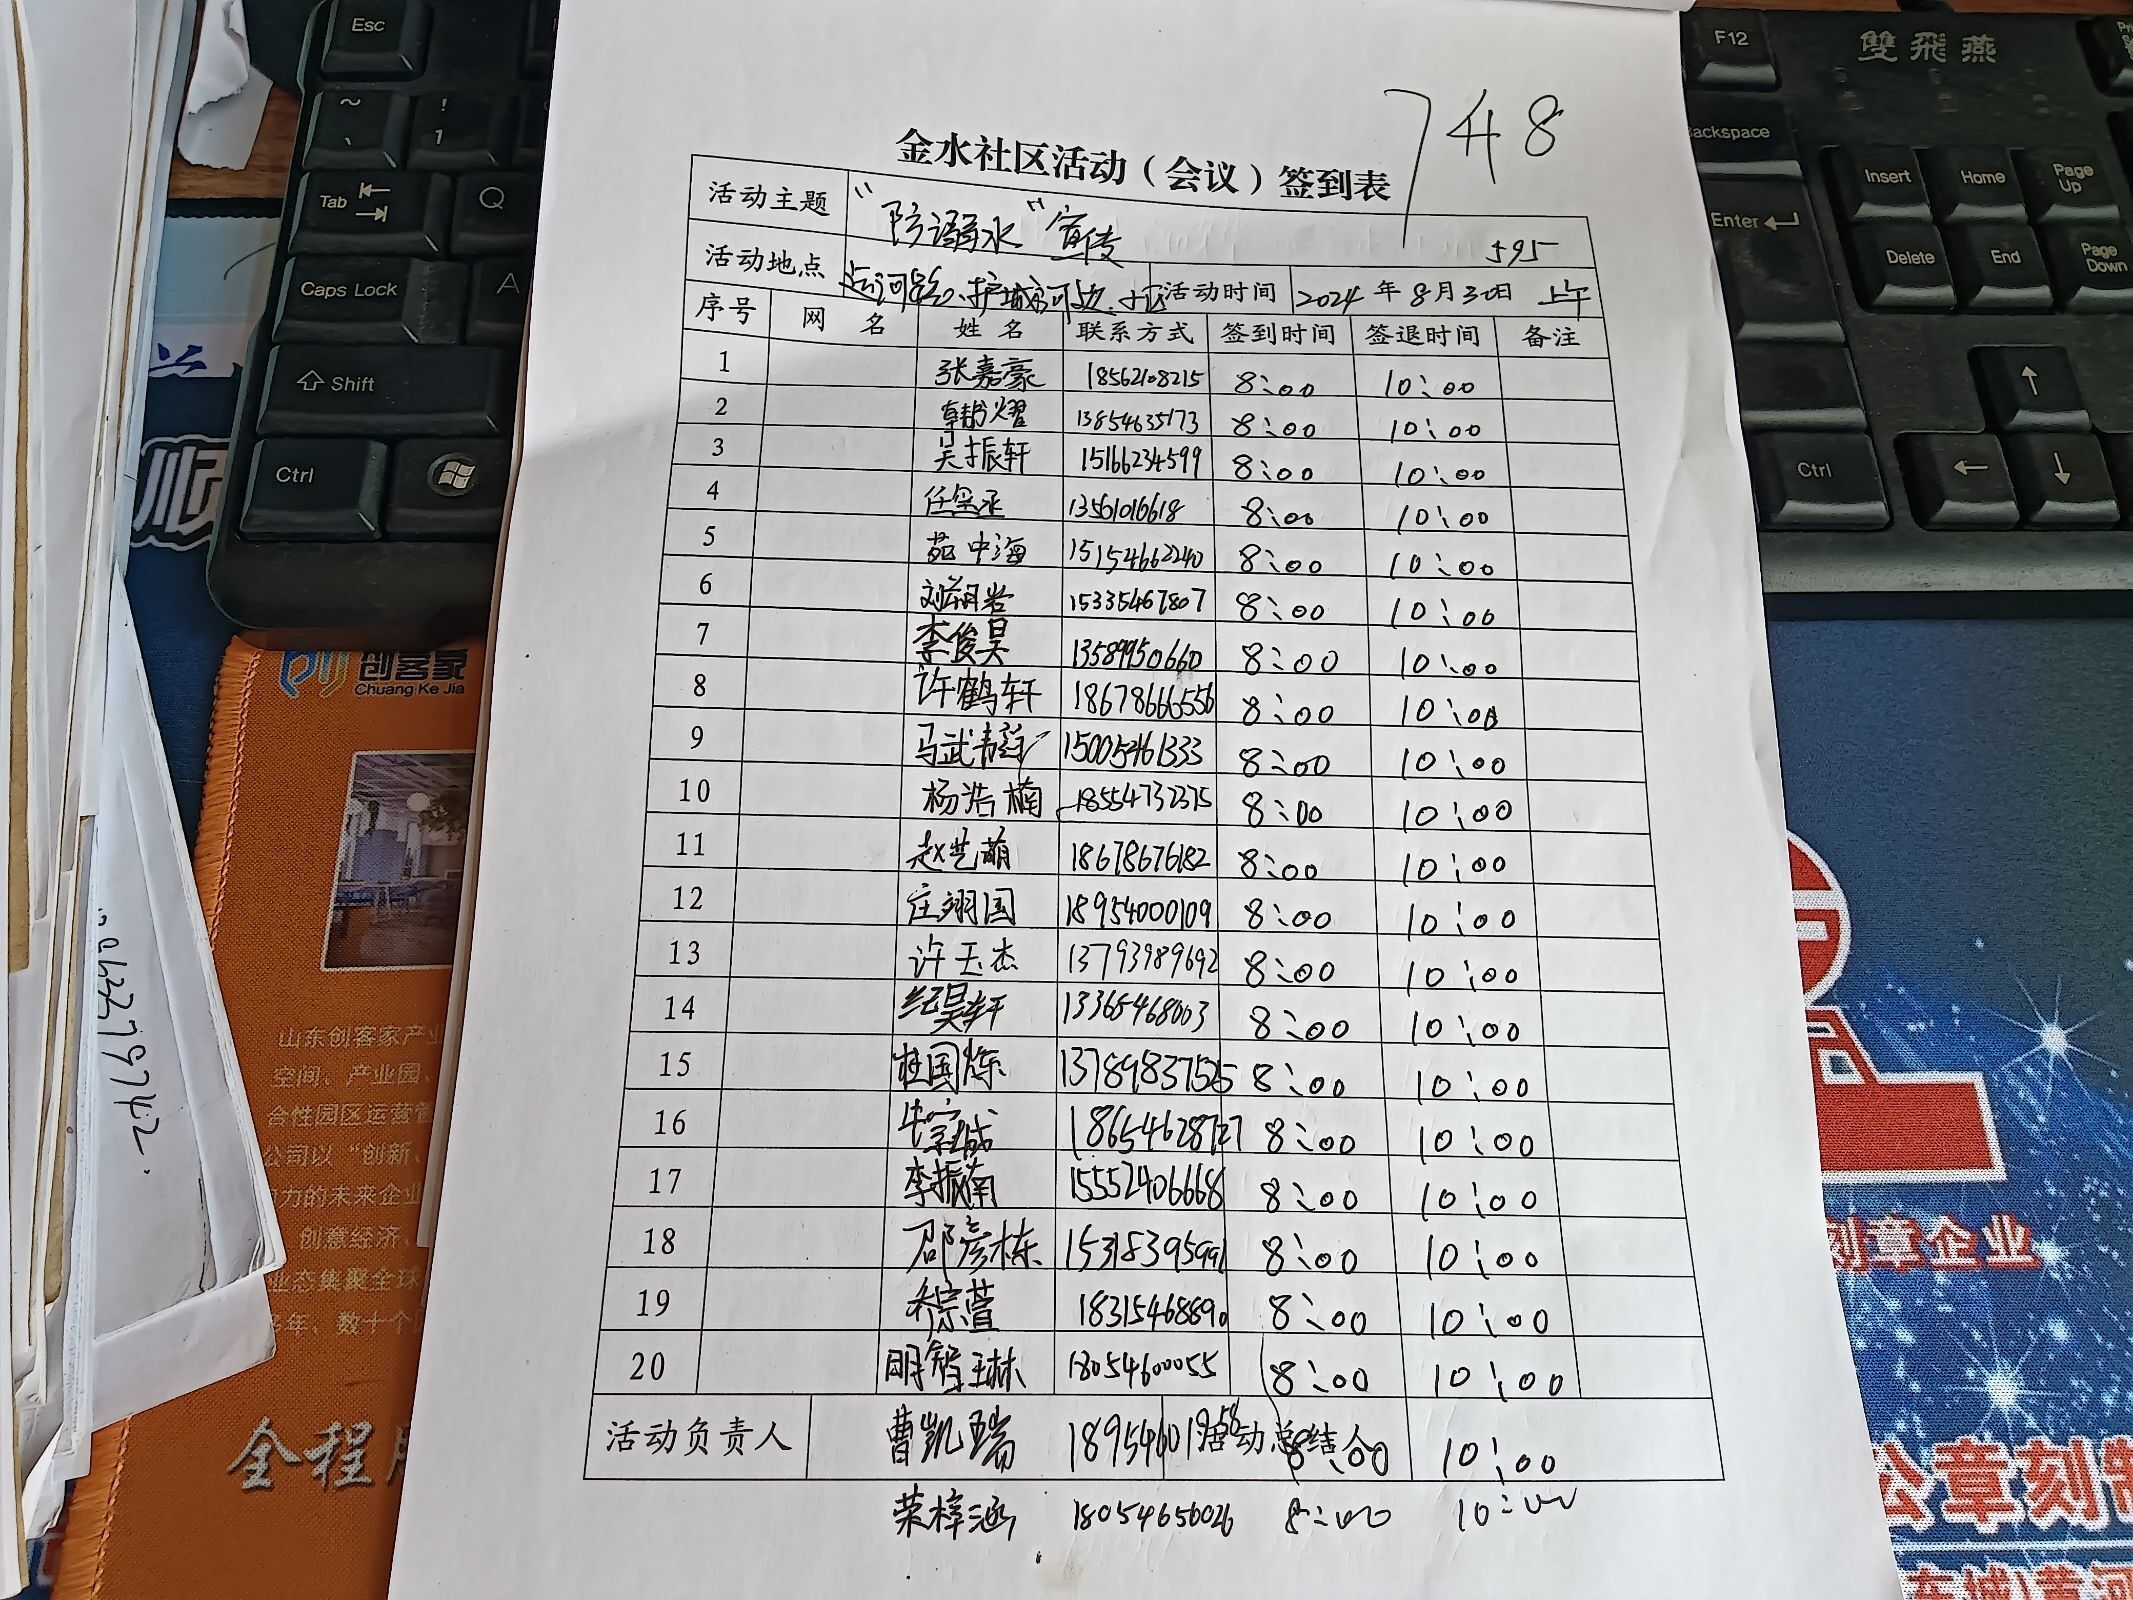 748
金水社区活动（会议）签到表
活动主题 "防溺水"宣传 595
活动地点 运河路、护城河边、小区 活动时间 2024年8月30日 上午
序号 网名 姓名 联系方式 签到时间 签退时间 备注
1 张嘉豪 18562108215 8:00 10:00
2 13854635173 8:00 10:00
3 吴振轩 15166234599 8:00 10:00
4 13561016618 8:00 10:00
5 苑中海 15154662240 8:00 10:00
6 15335467807 8:00 10:00
7 李俊昊 13589950660 8:00 10:00
8 许鹤轩 18678666556 8:00 10:00
9 15005461333 8:00 10:00
10 杨浩楠 18554732375 8:00 10:00
11 赵艺萌 18678676182 8:00 10:00
12 庄翔国 18954000109 8:00 10:00
13 许玉杰 13793989692 8:00 10:00
14 纪昊轩 13365468003 8:00 10:00
15 杜国烁 8:00 10:00
16 牛宗诚 8:00 10:00
17 李振南 15552406668 8:00 10:00
18 邵彦栋 15318395991 8:00 10:00
19 18315468890 8:00 10:00
20 18054600055 8:00 10:00
活动负责人 曹凯瑞 活动总结人 8:00 10:00
荣梓涵 18054656026 8:00 10:00
Esc
~
!
1
Tab
Q
Caps Lock
A
Shift
Ctrl
F12
雙飛燕
Backspace
Insert
Home
Page Up
Enter
Delete
End
Page Down
Ctrl
顺
创客家
Chuang Ke Jia
山东创客家产
空间、产业园、
合性园区运营管
公司以“创新、
力的未来企业
创意经济、
业态集聚全球
年、数十个
全程
刻章企业
公章刻制